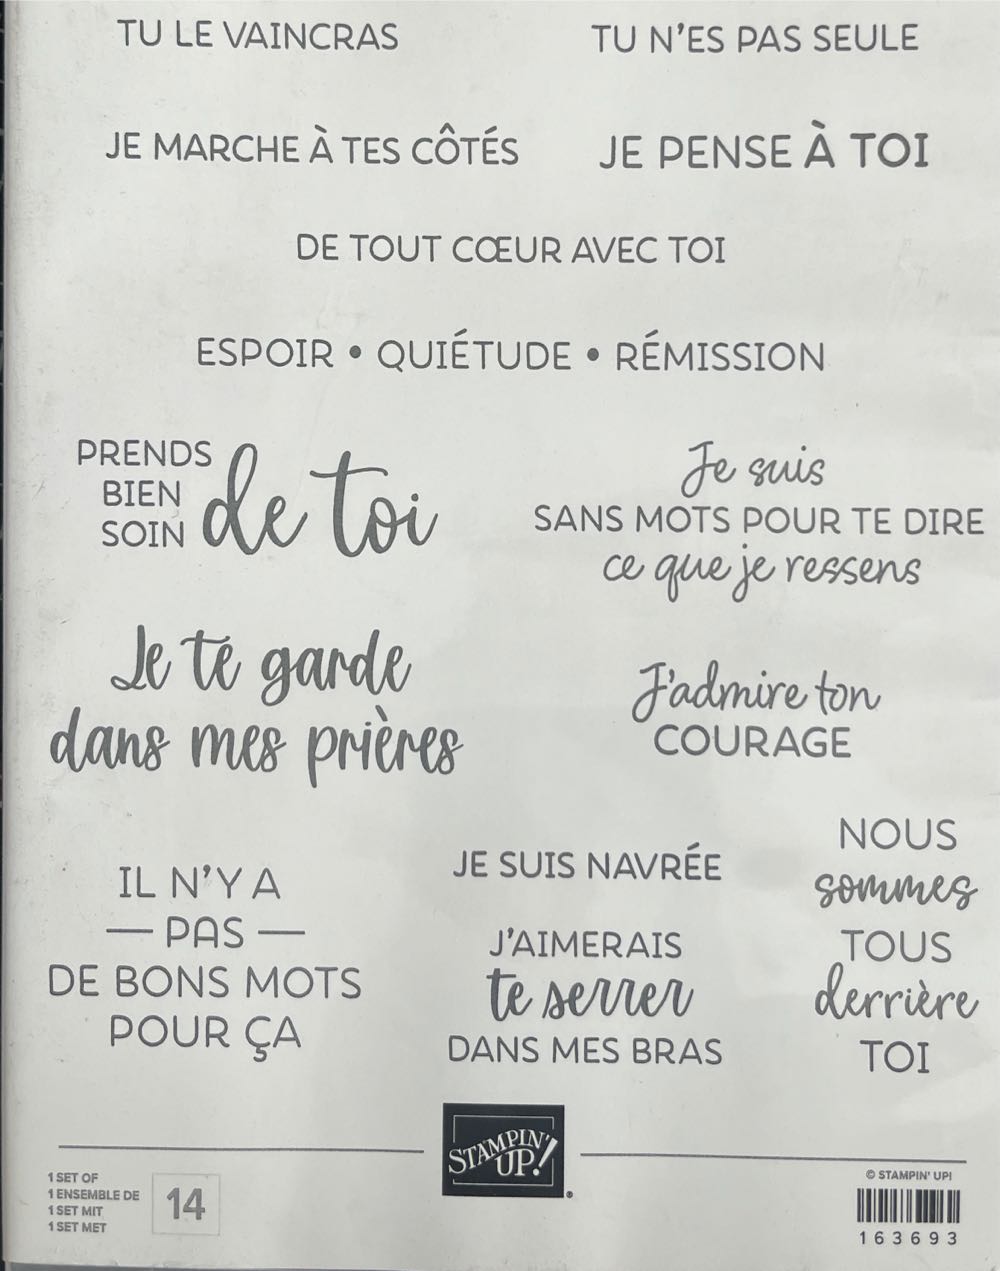 TU LE VAINCRAS
TU N'ES PAS SEULE
JE MARCHE À TES CÔTÉS
JE PENSE À TOI
DE TOUT CŒUR AVEC TOI
ESPOIR • QUIÉTUDE • RÉMISSION
PRENDS
BIEN
SOIN
de toi
Je suis
SANS MOTS POUR TE DIRE
ce que je ressens
Je te garde
dans mes prières
J'admire ton
COURAGE
IL N'Y A
— PAS —
DE BONS MOTS
POUR ÇA
JE SUIS NAVRÉE
J'AIMERAIS
te serrer
DANS MES BRAS
NOUS
sommes
TOUS
derrière
TOI
STAMPIN'
UP!
®
1 SET OF
1 ENSEMBLE DE
1 SET MIT
1 SET MET
14
© STAMPIN' UP!
163693